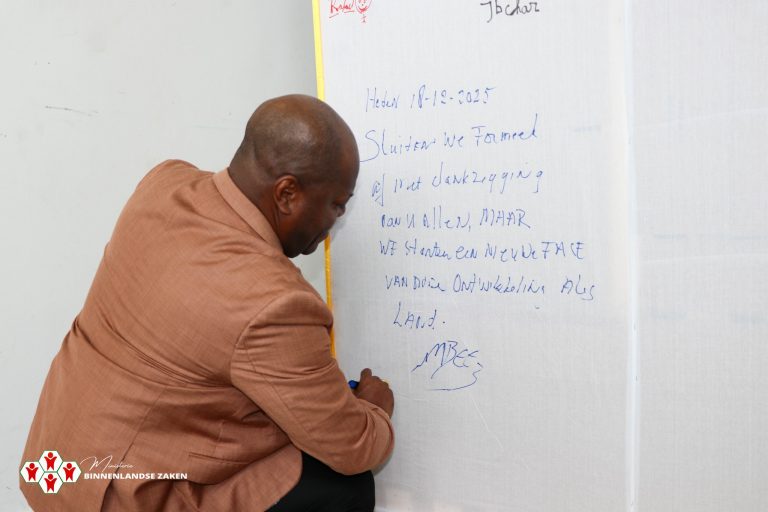 Jbchar
Heden 18-12-2025
Sluiten we Formeel
af met dankzegging
aan u allen, MAAR
WE starten een Nieuwe FASE
VAN Ontwikkeling Als
LAND.
MBEE
Ministerie
BINNENLANDSE ZAKEN